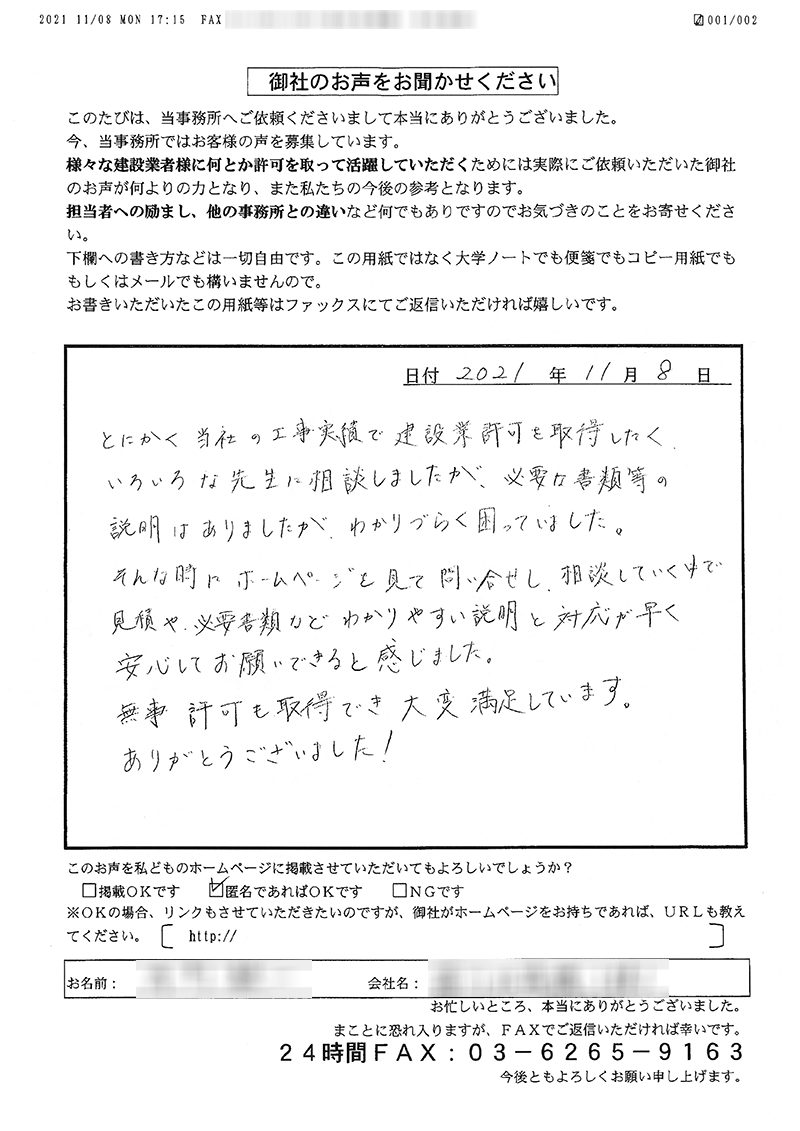 2021 11/08 MON 17:15 FAX
001/002
御社のお声をお聞かせください
このたびは、当事務所へご依頼くださいまして本当にありがとうございました。
今、当事務所ではお客様の声を募集しています。
様々な建設業者様に何とか許可を取って活躍していただくためには実際にご依頼いただいた御社
のお声が何よりの力となり、また私たちの今後の参考となります。
担当者への励まし、他の事務所との違いなど何でもありですのでお気づきのことをお寄せくださ
い。
下欄への書き方などは一切自由です。この用紙ではなく大学ノートでも便箋でもコピー用紙でも
もしくはメールでも構いませんので。
お書きいただいたこの用紙等はファックスにてご返信いただければ嬉しいです。
日付 2021 年 11 月 8 日
とにかく当社の工事実績で建設業許可を取得したく、
いろいろな先生に相談しましたが、必要な書類等の
説明はありましたが、わかりづらく困っていました。
そんな時にホームページを見て問い合せし、相談していく中で
見積や、必要書類などわかりやすい説明と対応が早く
安心してお願いできると感じました。
無事許可も取得でき大変満足しています。
ありがとうございました!
このお声を私どものホームページに掲載させていただいてもよろしいでしょうか？
□掲載ＯＫです ☑匿名であればＯＫです □ＮＧです
※ＯＫの場合、リンクもさせていただきたいのですが、御社がホームページをお持ちであれば、ＵＲＬも教え
てください。［ http:// ］
お名前： 会社名：
お忙しいところ、本当にありがとうございました。
まことに恐れ入りますが、ＦＡＸでご返信いただければ幸いです。
２４時間ＦＡＸ：０３－６２６５－９１６３
今後ともよろしくお願い申し上げます。